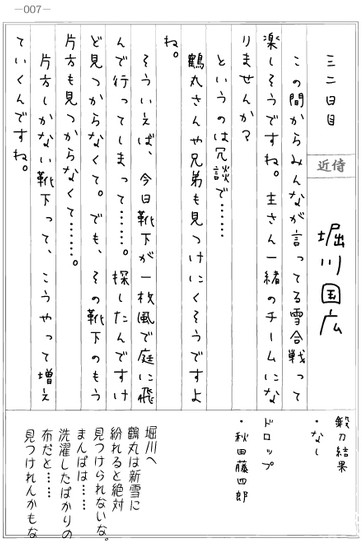 —007—
三二日目
近侍
堀川国広
この間からみんなが言ってる雪合戦って
楽しそうですね。主さん一緒のチームにな
りませんか?
というのは冗談で……
鶴丸さんや兄弟も見つけにくそうですよ
ね。
そういえば、今日靴下が一枚風で庭に飛
んで行ってしまって……。探したんですけ
ど見つからなくて。でも、その靴下のもう
片方も見つからなくて……。
片方しかない靴下って、こうやって増え
ていくんですね。
鍛刀結果
・なし
ドロップ
・秋田藤四郎
堀川へ
鶴丸は新雪に
紛れると絶対
見つけられないな。
まんばは……
洗濯したばかりの
布だと……
見つけれんかもな